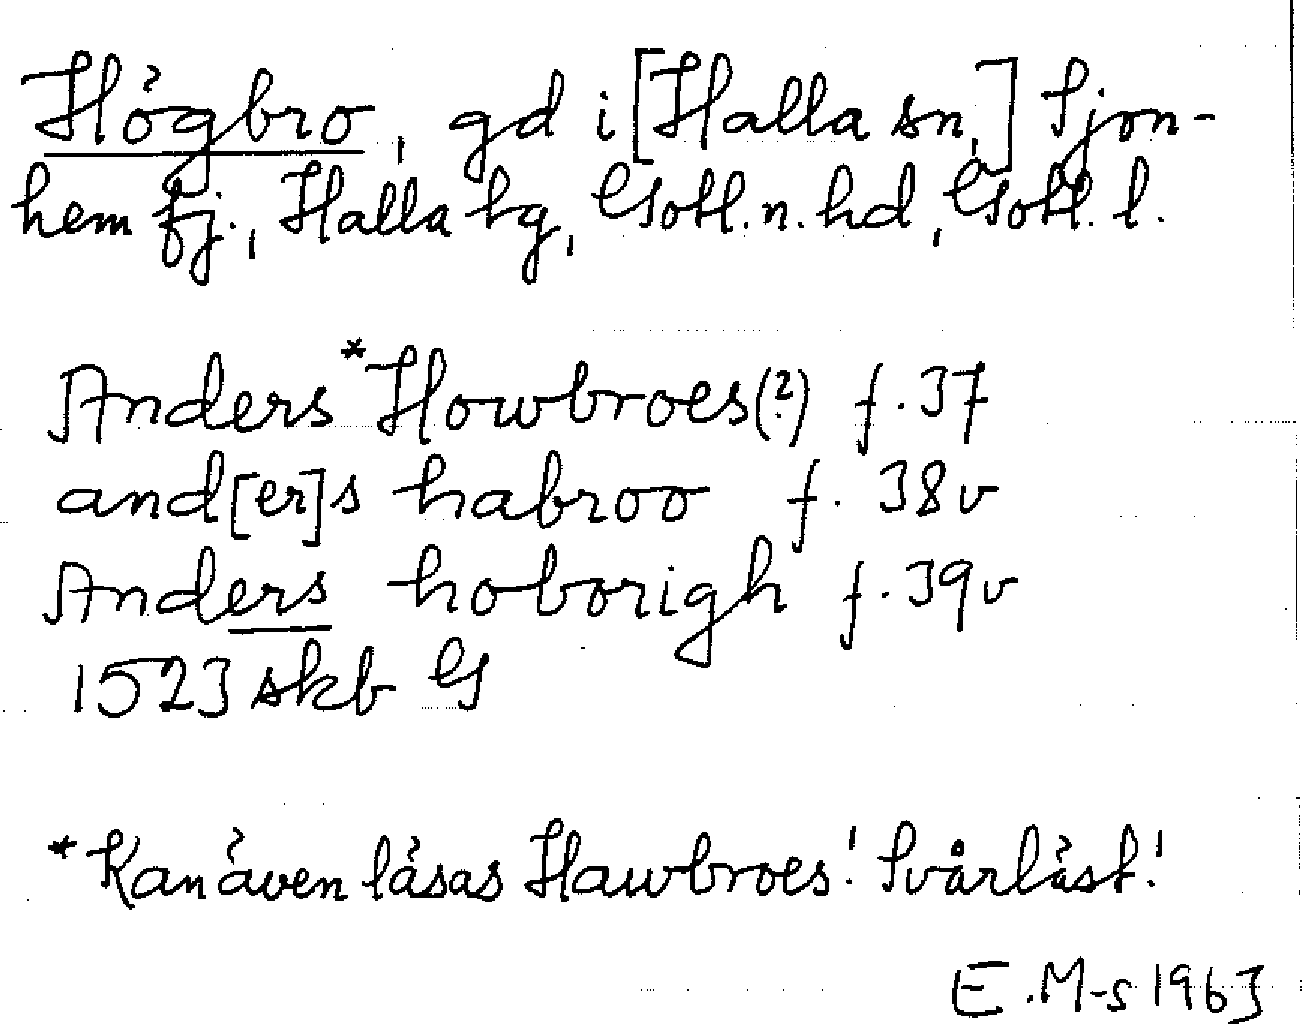 Högbro, gd i [Halla sn,] Sjon-
hem fj., Halla tg, Gotl. n. hd, Gotl. l.
Anders *Howbroes(?) f. 37
and[er]s habroo f. 38v
Anders hoborigh f. 39v
1523 skb G
*Kan även läsas Hawbroes! Svårläst!
E.M-s 1963